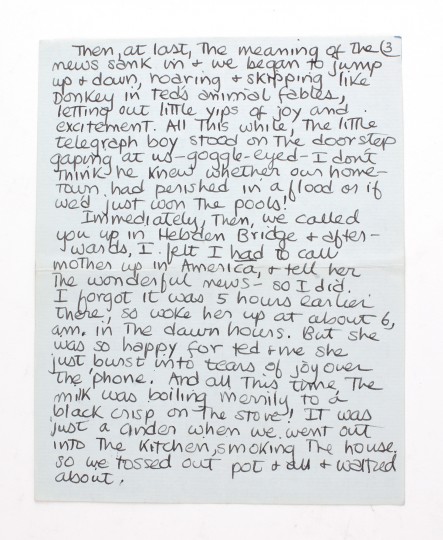 Then, at last, the meaning of the (3
news sank in & we began to jump
up & down, roaring & skipping like
Donkey in Ted's animal fables,
letting out little yips of joy and
excitement. All this while, the little
telegraph boy stood on the doorstep
gaping at us - goggle-eyed - I don't
think he knew whether our home-
town had perished in a flood or if
we'd just won the pools!
Immediately, then, we called
you up in Hebden Bridge & after-
wards, I felt I had to call
mother up in America, & tell her
the wonderful news - so I did.
I forgot it was 5 hours earlier
there, so woke her up at about 6,
am, in the dawn hours. But she
was so happy for ted & me she
just burst into tears of joy over
the 'phone. And all this time, the
milk was boiling merrily to a
black crisp on the stove! It was
just a cinder when we went out
into the kitchen, smoking the house,
so we tossed out pot & all & waltzed
about.